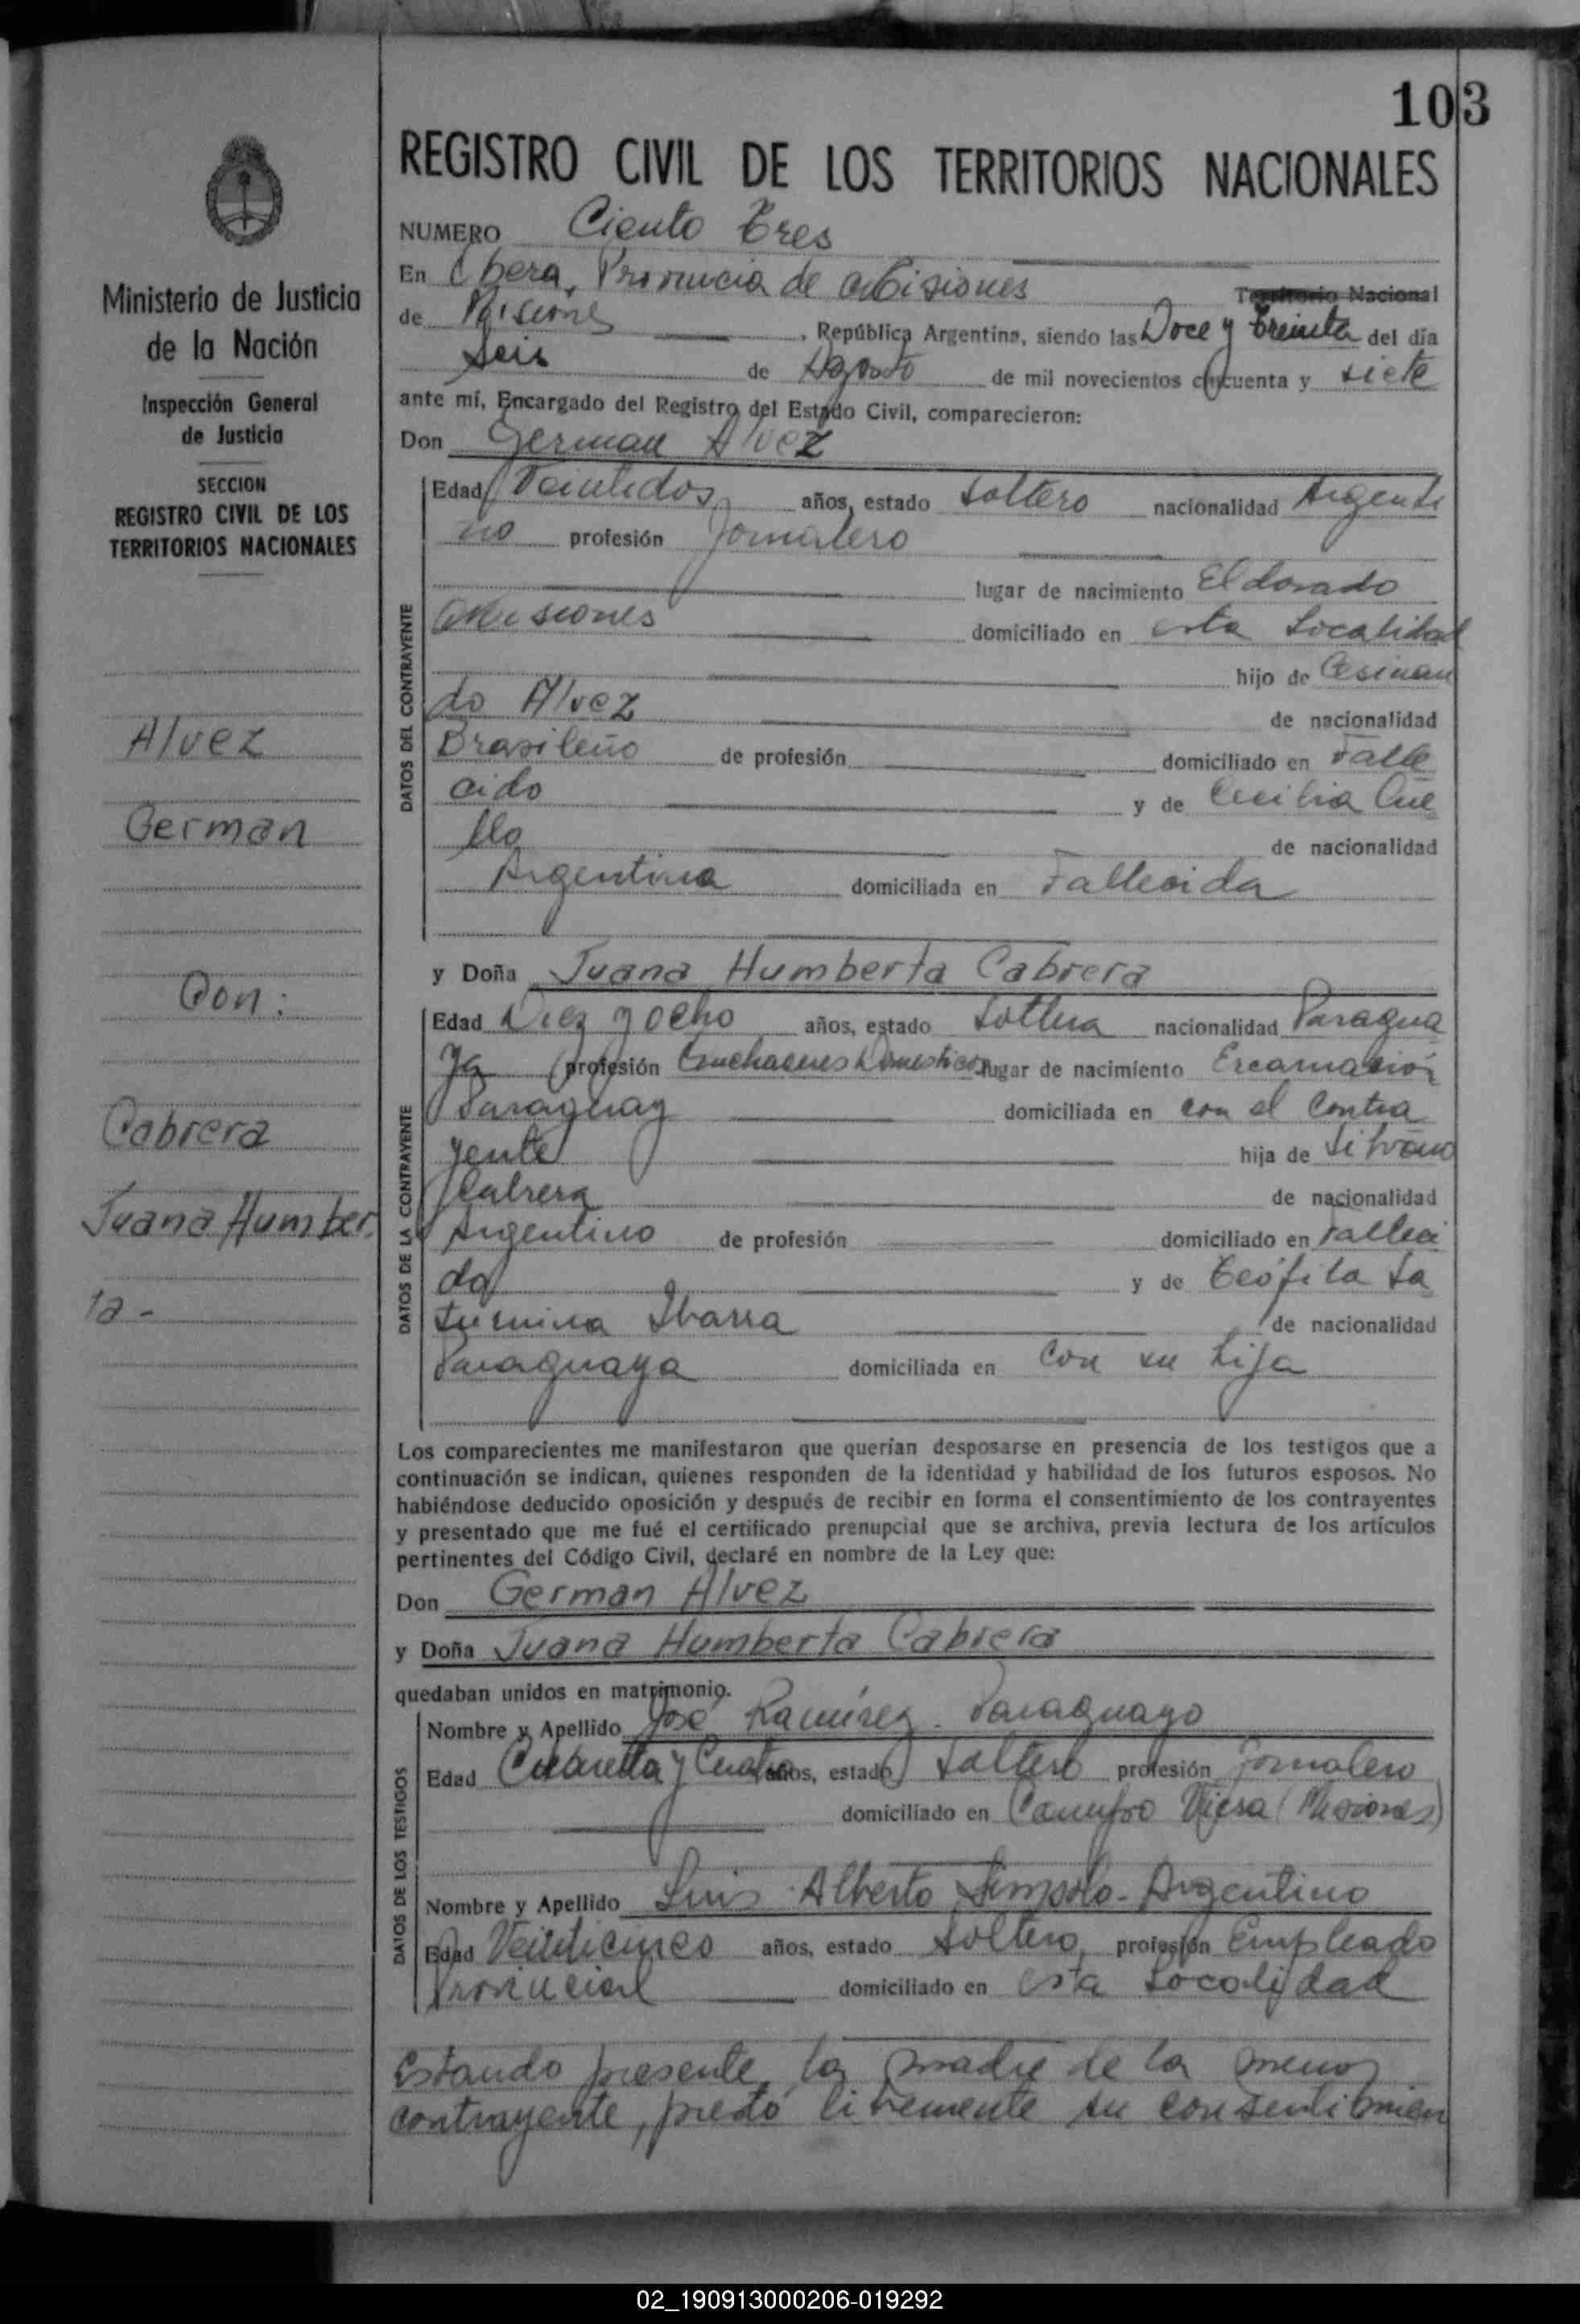 103
REGISTRO CIVIL DE LOS TERRITORIOS NACIONALES
Ministerio de Justicia
de la Nación
Inspección General
de Justicia
SECCION
REGISTRO CIVIL DE LOS
TERRITORIOS NACIONALES
Alvez
German
Con:
Cabrera
Juana Humber
ta-
NUMERO Ciento Tres
En Obera, Provincia de Misiones Territorio Nacional
de Misiones, República Argentina, siendo las Doce y Treinta del día
Seis de Agosto de mil novecientos cincuenta y siete
ante mí, Encargado del Registro del Estado Civil, comparecieron:
Don German Alvez
DATOS DEL CONTRAYENTE
Edad Veintidos años, estado Soltero nacionalidad Argenti
no profesión Jornalero
lugar de nacimiento Eldorado
Misiones domiciliado en esta Localidad
hijo de
do Alvez de nacionalidad
Brasileño de profesión domiciliado en Falle
cido y de Cecilia Cue
llo de nacionalidad
Argentina domiciliada en Fallecida
y Doña Juana Humberta Cabrera
DATOS DE LA CONTRAYENTE
Edad Diez y ocho años, estado Soltera nacionalidad Paragua
ya profesión Quehaceres Domesticos lugar de nacimiento Encarnación
Paraguay domiciliada en con el Contra
yente hija de Silvano
Cabrera de nacionalidad
Argentino de profesión domiciliado en Falleci
do y de Teófila Sa
turnina Ibarra de nacionalidad
Paraguaya domiciliada en Con su hija
Los comparecientes me manifestaron que querían desposarse en presencia de los testigos que a
continuación se indican, quienes responden de la identidad y habilidad de los futuros esposos. No
habiéndose deducido oposición y después de recibir en forma el consentimiento de los contrayentes
y presentado que me fué el certificado prenupcial que se archiva, previa lectura de los artículos
pertinentes del Código Civil, declaré en nombre de la Ley que:
Don German Alvez
y Doña Juana Humberta Cabrera
quedaban unidos en matrimonio.
DATOS DE LOS TESTIGOS
Nombre y Apellido José Ramírez - Paraguayo
Edad Cuarenta y Cuatro años, estado Soltero profesión Jornalero
domiciliado en Campo Viera (Misiones)
Nombre y Apellido Luis Alberto - Argentino
Edad Veinticinco años, estado Soltero, profesión Empleado
Provincial domiciliado en esta Localidad
Estando presente la madre de la menor
contrayente, prestó libremente su consentimien
02_190913000206-019292